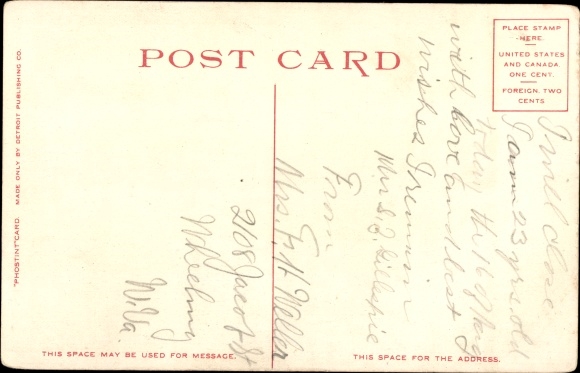 POST CARD
PLACE STAMP
HERE.
UNITED STATES
AND CANADA
ONE CENT.
FOREIGN, TWO
CENTS
"PHOSTINT" CARD. MADE ONLY BY DETROIT PUBLISHING CO.
I will close
I am 23 yrs old
today the 16 of
with love and best
wishes I remain
Mrs S. J. Gillespie
From
Mrs F. H Weller
2108 Jacob St
Wheeling
W. Va.
THIS SPACE MAY BE USED FOR MESSAGE.
THIS SPACE FOR THE ADDRESS.